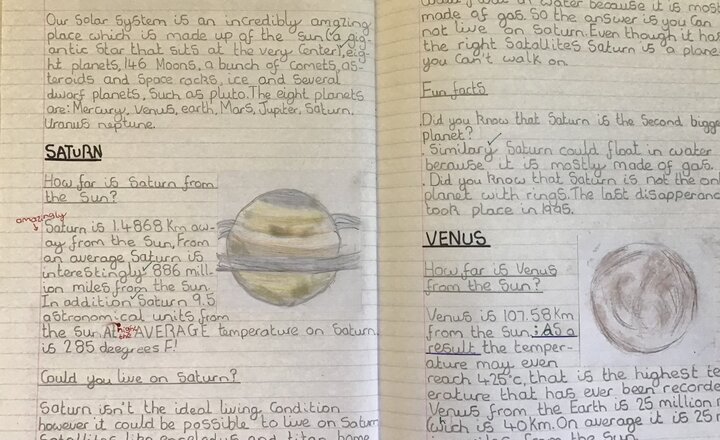 Our Solar System is an incredibly amazing
place which is made up of the Sun (a gig-
antic Star that sits at the very Center), eig-
ht planets, 146 Moons, a bunch of Comets, as-
teroids and Space rocks, ice and Several
dwarf planets, Such as pluto. The eight planets
are: Mercury, Venus, earth, Mars, Jupiter, Saturn,
Uranus neptune.
SATURN
How far is Saturn from
the Sun?
amazingly
Saturn is 1.4868 Km aw-
ay from the Sun, From
an average Saturn is
interestingly 886 mill-
ion miles from the Sun.
In addition Saturn 9.5
astronomical units from
the Sun. At high the AVERAGE temperature on Saturn
is 285 deegrees F!
Could you live on Saturn?
Saturn isn't the ideal living Condition
however it could be possible to live on Saturn
Satallites like enceledus and titan home
in water because it is most
made of gas. So the answer is you Can
not live on Saturn. Even though it has
the right Satallites Saturn is a plane
you Can't walk on.
Fun facts
Did you know that Saturn is the Second bigge
planet?
Similary Saturn could float in water
because it is mostly made of gas.
. Did you know that Saturn is not the onl
planet with rings. The last disapperanc
took place in 1995.
VENUS
How far is Venus
from the Sun?
Venus is 107.58 Km
from the Sun; As a
result the temper-
ature may even
reach 425°c, that is the highest te
erature that has ever been recorde
Venus from the Earth is 25 million m
(wich is 40 Km. On average it is 25 m
from the Sun